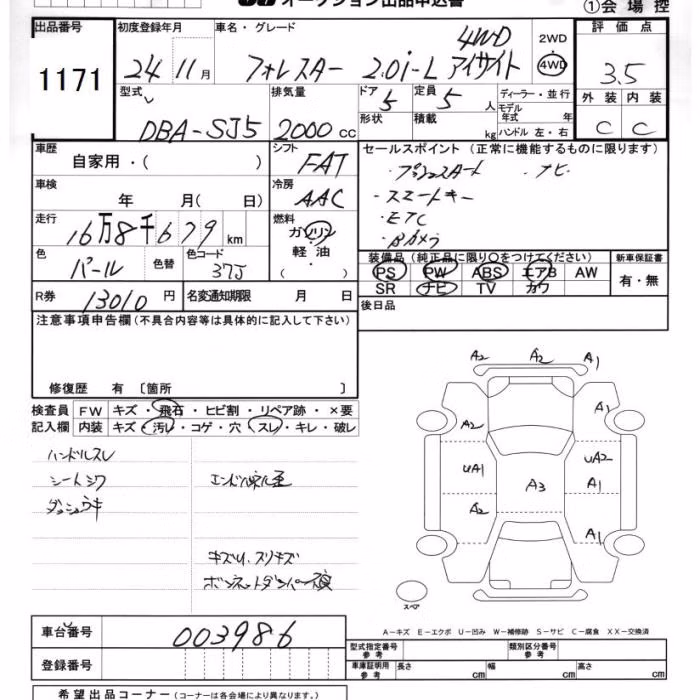 オークション出品申込書 ①会場控
出品番号 1171
初度登録年月 24 11月
車名・グレード フォレスター 2.0i-L アイサイト 4WD
2WD 4WD
評価点 3.5
外装 C 内装 C
型式 DBA-SJ5
排気量 2000 cc
ドア 5 定員 5 人
形状 積載 kg
ディーラー・並行
モデル年式 年
ハンドル 左・右
車歴 自家用・( )
シフト FAT
車検 年 月( 日)
冷房 AAC
走行 16万8千679 km
燃料 ガソリン・軽油・( )
色 パール 色替 色コード 37J
R券 13010 円 名変通知期限 月 日
セールスポイント(正常に機能するものに限ります)
・プッシュスタート ・ナビ
・スマートキー
・ETC
・Bカメラ
装備品(純正品に限り○をつけてください) 新車保証書
PS PW ABS エアB AW 有・無
SR ナビ TV カワ
後日品
注意事項申告欄(不具合内容等は具体的に記入して下さい)
修復歴 有 〔箇所 〕
検査員 FW キズ・飛石・ヒビ割・リペア跡・×要
記入欄 内装 キズ・汚レ・コゲ・穴・スレ・キレ・破レ
ハンドルスレ
シートシワ
ダッシュウキ
キズU、スリキズ
A2 A2 A1
A2 A1
UA1 A3 UA2
A1
A2 A1
スペア
A-キズ E-エクボ U-凹み W-補修跡 S-サビ C-腐食 XX-交換済
車台番号 003986
登録番号
型式指定番号 参考 類別区分番号 参考
車庫証明用 参考 長さ cm 幅 cm 高さ cm
希望出品コーナー(コーナーは各会場により異なります。)